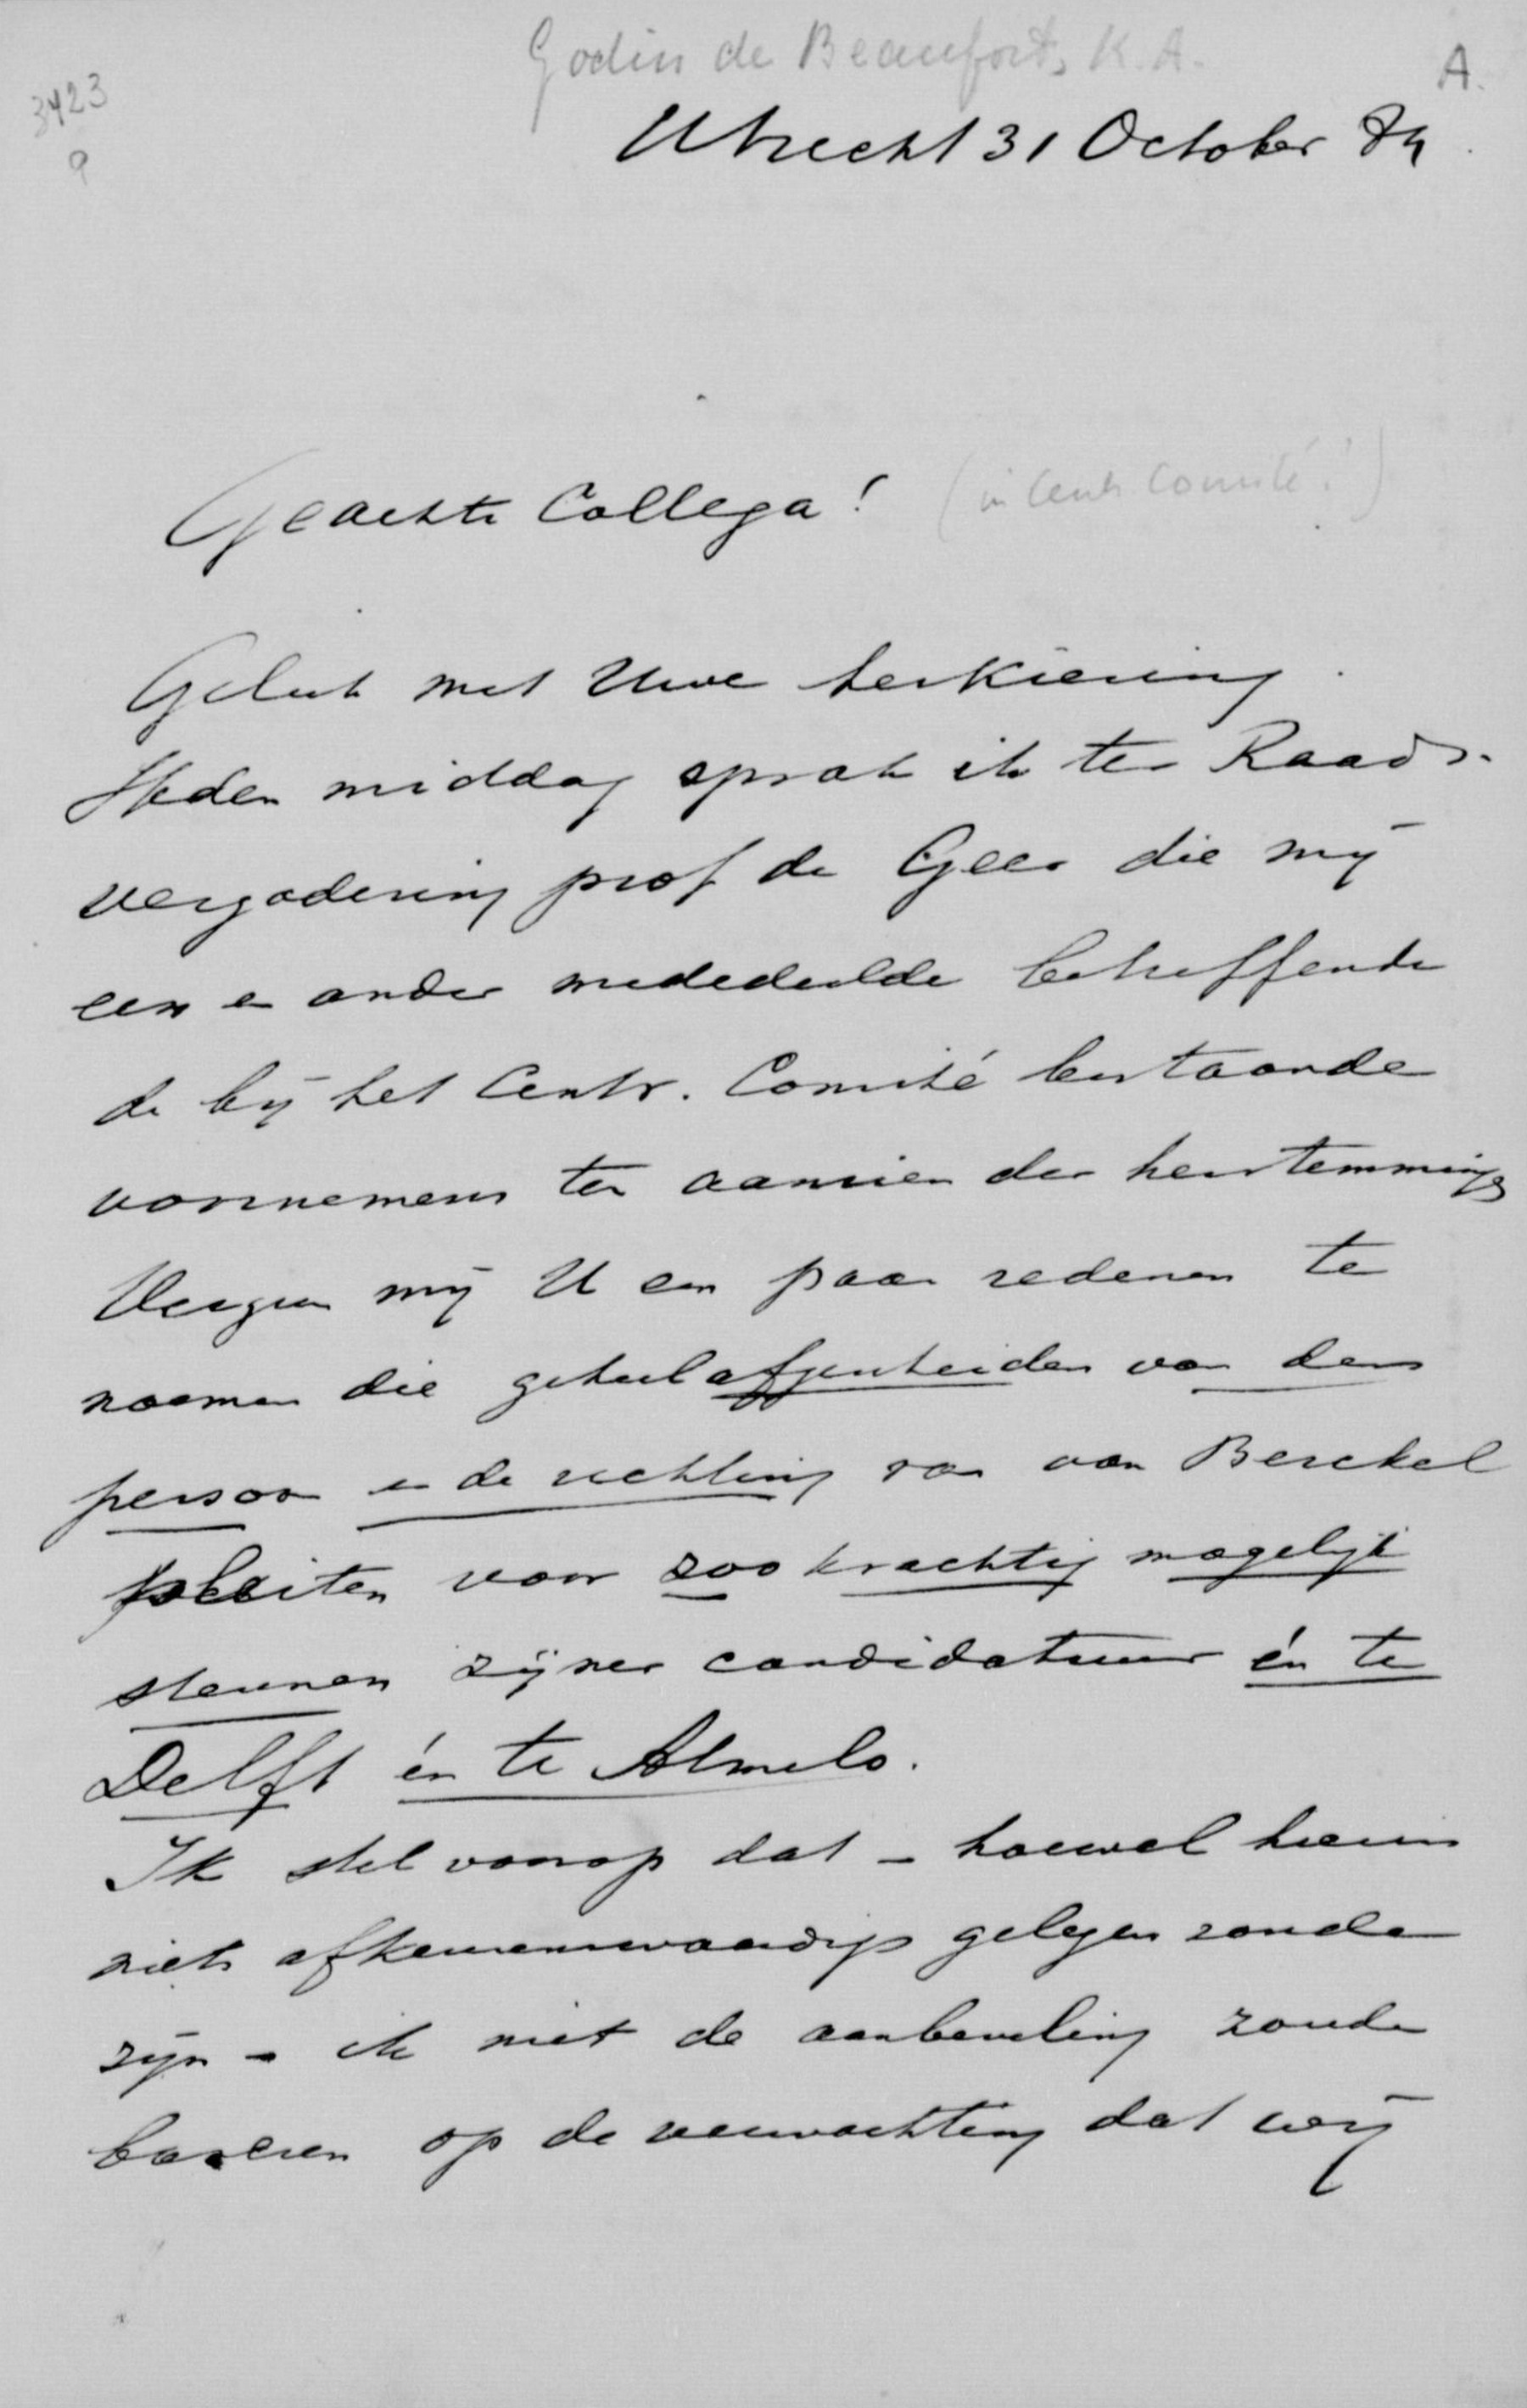 Godin de Beaufort, K.A.
A.
3423
9
Utrecht 31 October 84
Geachte Collega! (in Centr Comité!)
Geluk met Uwe herkiezing.
Heden middag sprak ik ter Raads-
vergadering prof de Geer die mij
een en ander mededeelde betreffende
de bij het Centr. Comité bestaande
voornemens ten aanzien der herstemmingen
Vergun mij U een paar redenen te
noemen die geheel afgescheiden van den
persoon en de richting van van Berckel
pleiten voor zoo krachtig mogelijk
steunen zijner candidatuur én te
Delft én te Almelo.
Ik stel voorop dat – hoewel hierin
niets afkeurenswaardigs gelegen zoude
zijn – ik niet de aanbeveling zoude
baseren op de verwachting dat wij